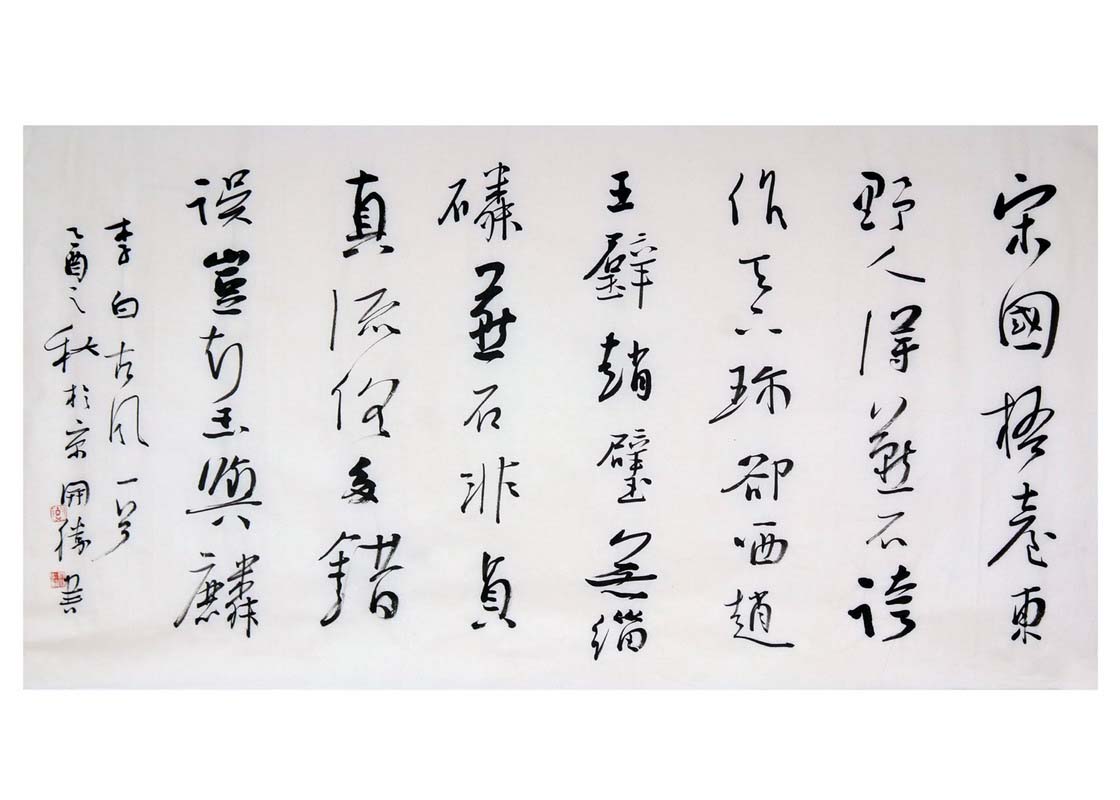 宋國梧臺東
野人得燕石誇
作天下珍卻哂趙
王璧趙璧無緇
磷燕石非貞
真流俗多錯
誤豈知玉與麟
李白古風一首
乙酉之秋於京開勝書